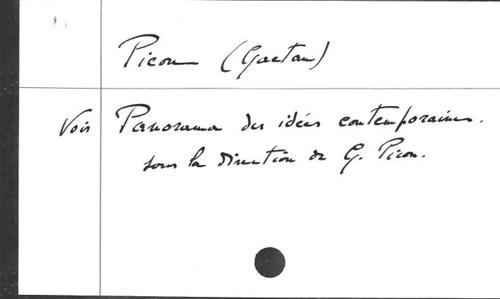 Picon (Gaetan)
Voir Panorama des idées contemporaines.
sous la direction de G. Picon.